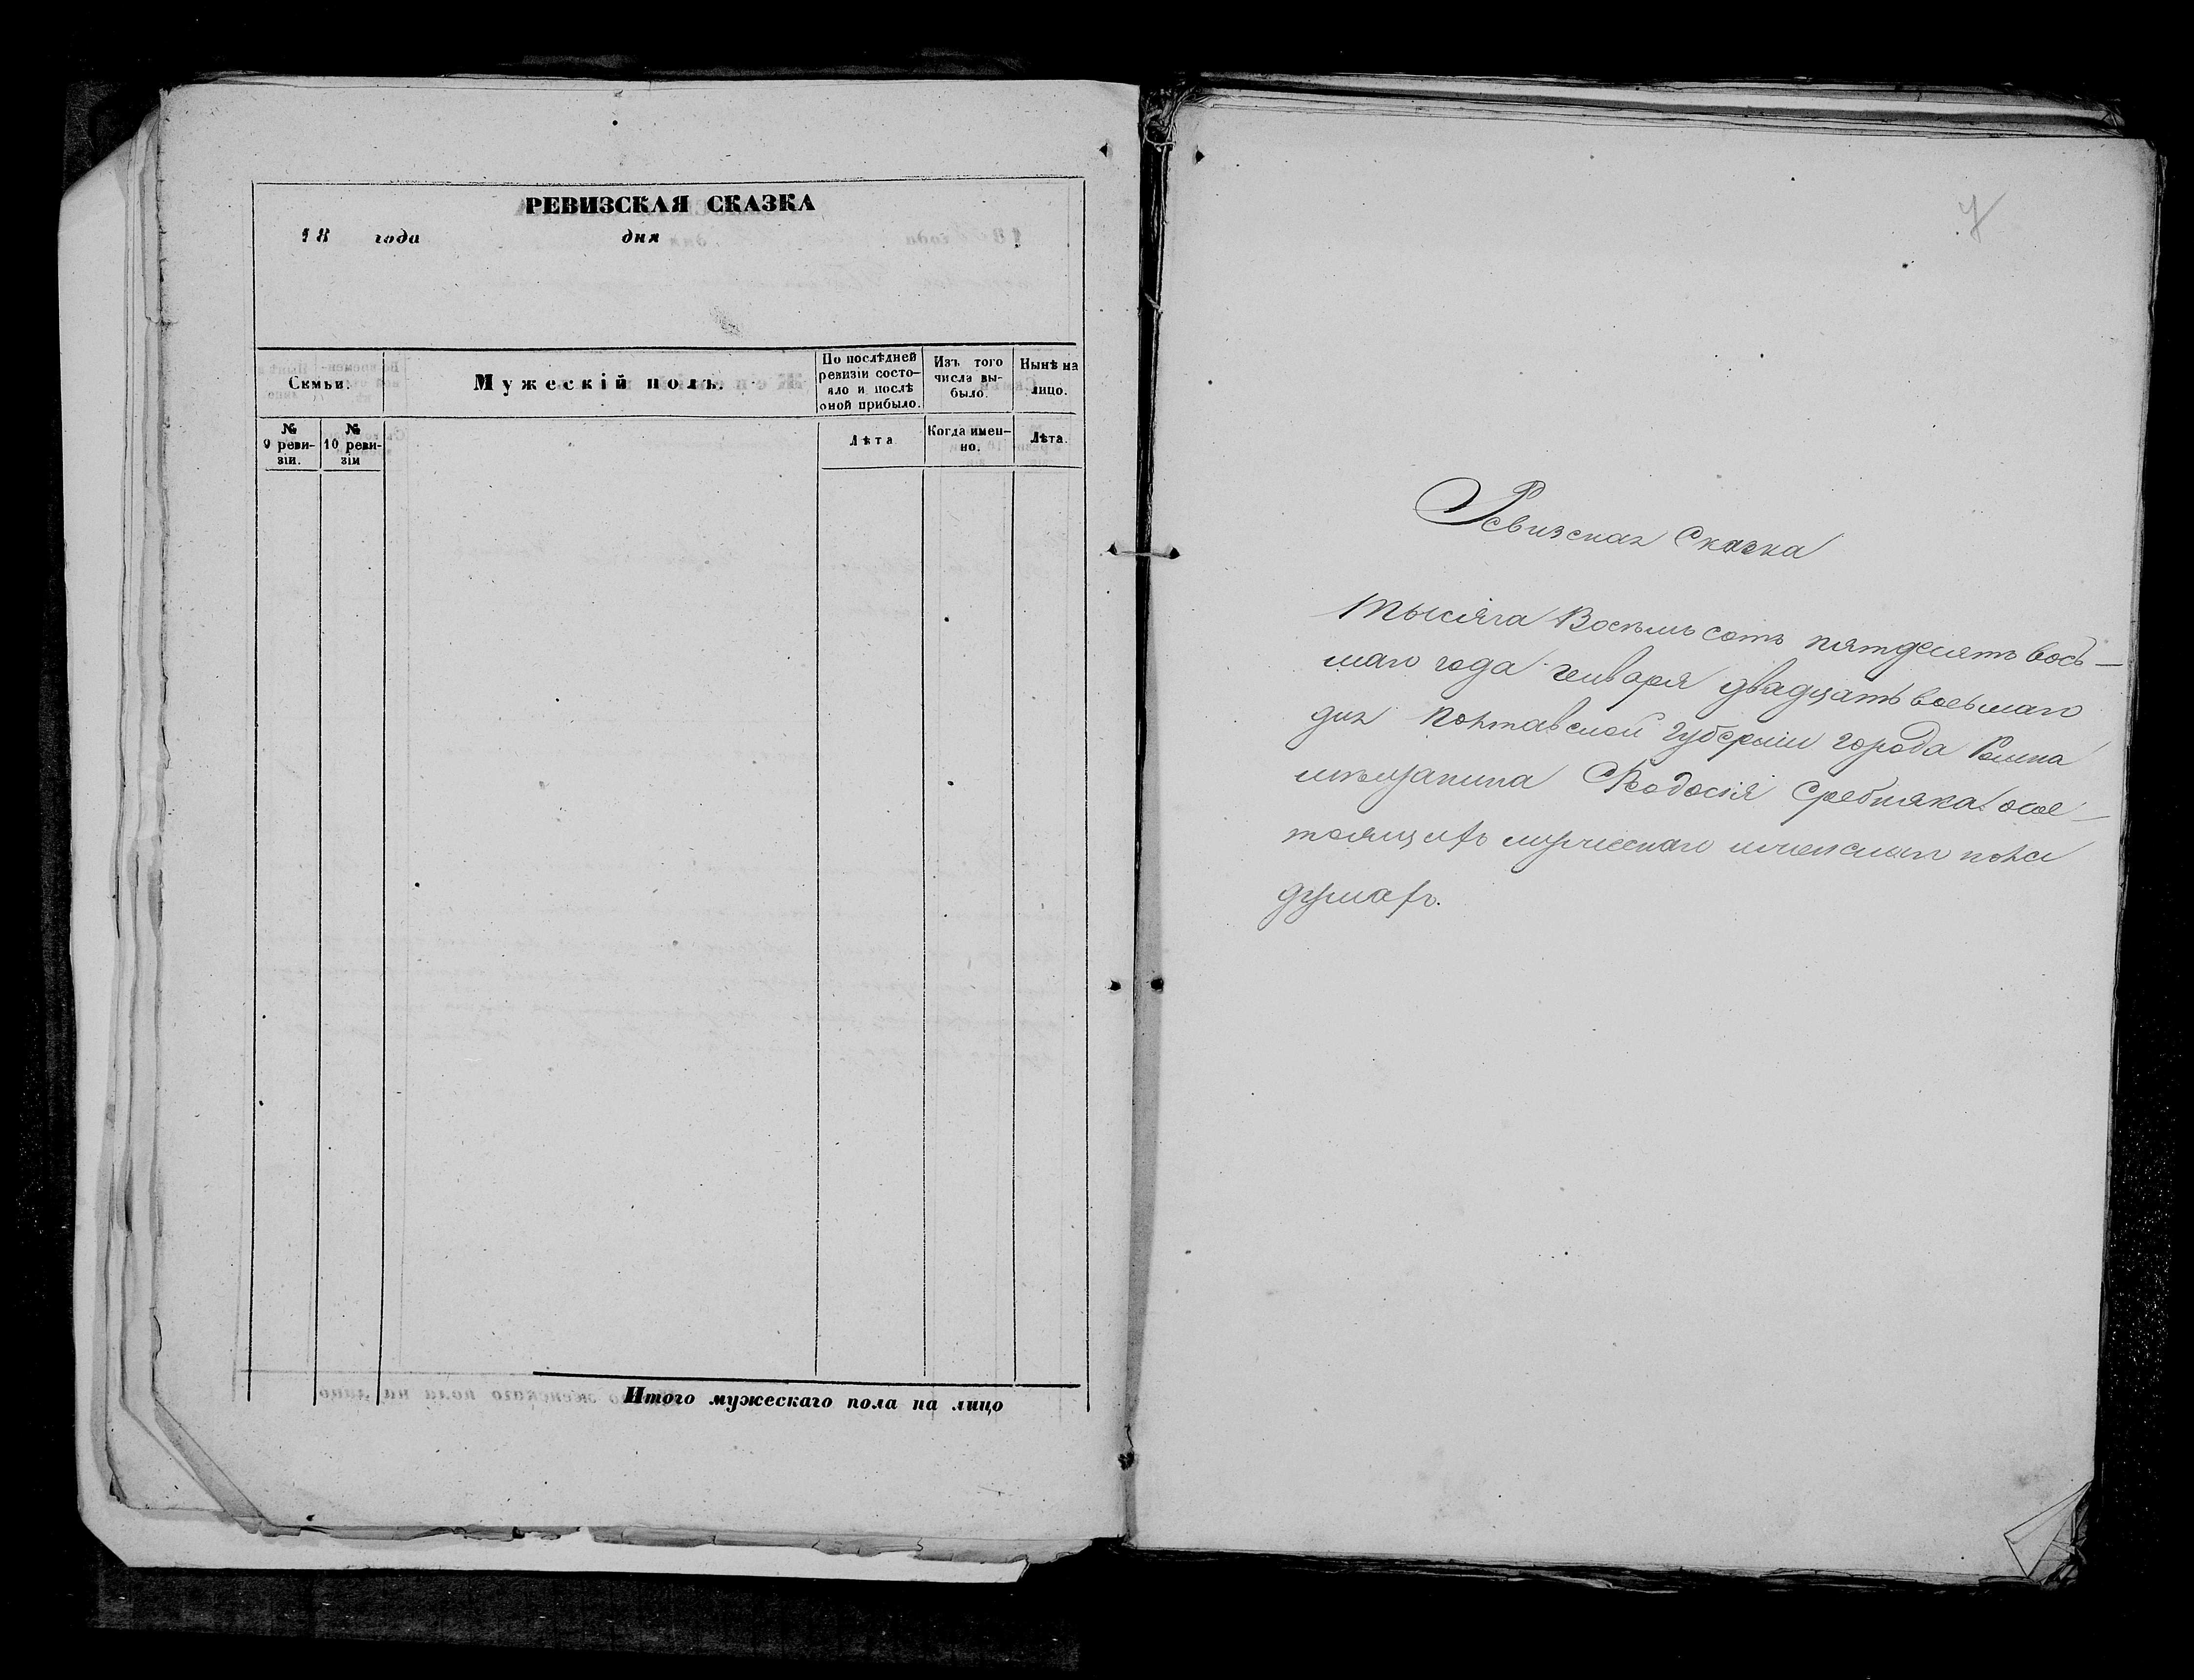 РЕВИЗСКАЯ СКАЗКА
18 года дня
Семьи.
Мужескій полъ.
По послѣдней ревизіи состояло и послѣ оной прибыло.
Изъ того числа выбыло.
Нынѣ на лицо.
№ 9 ревизіи.
№ 10 ревизіи
Лѣта
Когда именно.
Лѣта.
Итого мужескаго пола на лицо
7
Ревизская Сказка
Тысяча Восемь сотъ пятдесятъ вось-
маго года генваря двадцать восьмаго
дня Полтавской Губерніи города Ромна
мѣщанина Феодосія Сребняка о сос-
тоящихъ мужескаго и женскаго пола
душахъ.